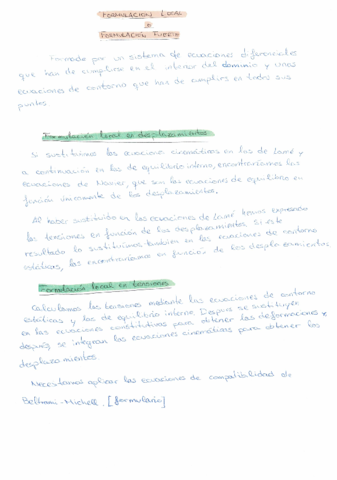 FORMULACIÓN LOCAL
o
FORMULACIÓN FUERTE
Formada por un sistema de ecuaciones diferenciales
que han de cumplirse en el interior del dominio y unas
ecuaciones de contorno que han de cumplirse en todos sus
puntos
Formulación local en desplazamientos
Si sustituimos las ecuaciones cinemáticas en las de Lamé y
a continuación en las de equilibrio interno, encontraremos las
ecuaciones de Navier, que son las ecuaciones de equilibrio en
función únicamente de los desplazamientos.
Al haber sustituido en las ecuaciones de Lamé hemos expresado
las tensiones en función de los desplazamientos. Si este
resultado lo sustituimos también en las ecuaciones de contorno
estáticas, las encontraremos en función de los desplazamientos.
Formulación local en tensiones
Calculamos las tensiones mediante las ecuaciones de contorno
estáticas y las de equilibrio interno. Después se sustituyen
en las ecuaciones constitutivas para obtener las deformaciones y
después se integran las ecuaciones cinemáticas para obtener los
desplazamientos.
Necesitamos aplicar las ecuaciones de compatibilidad de
Beltrami-Michell. [formulario]